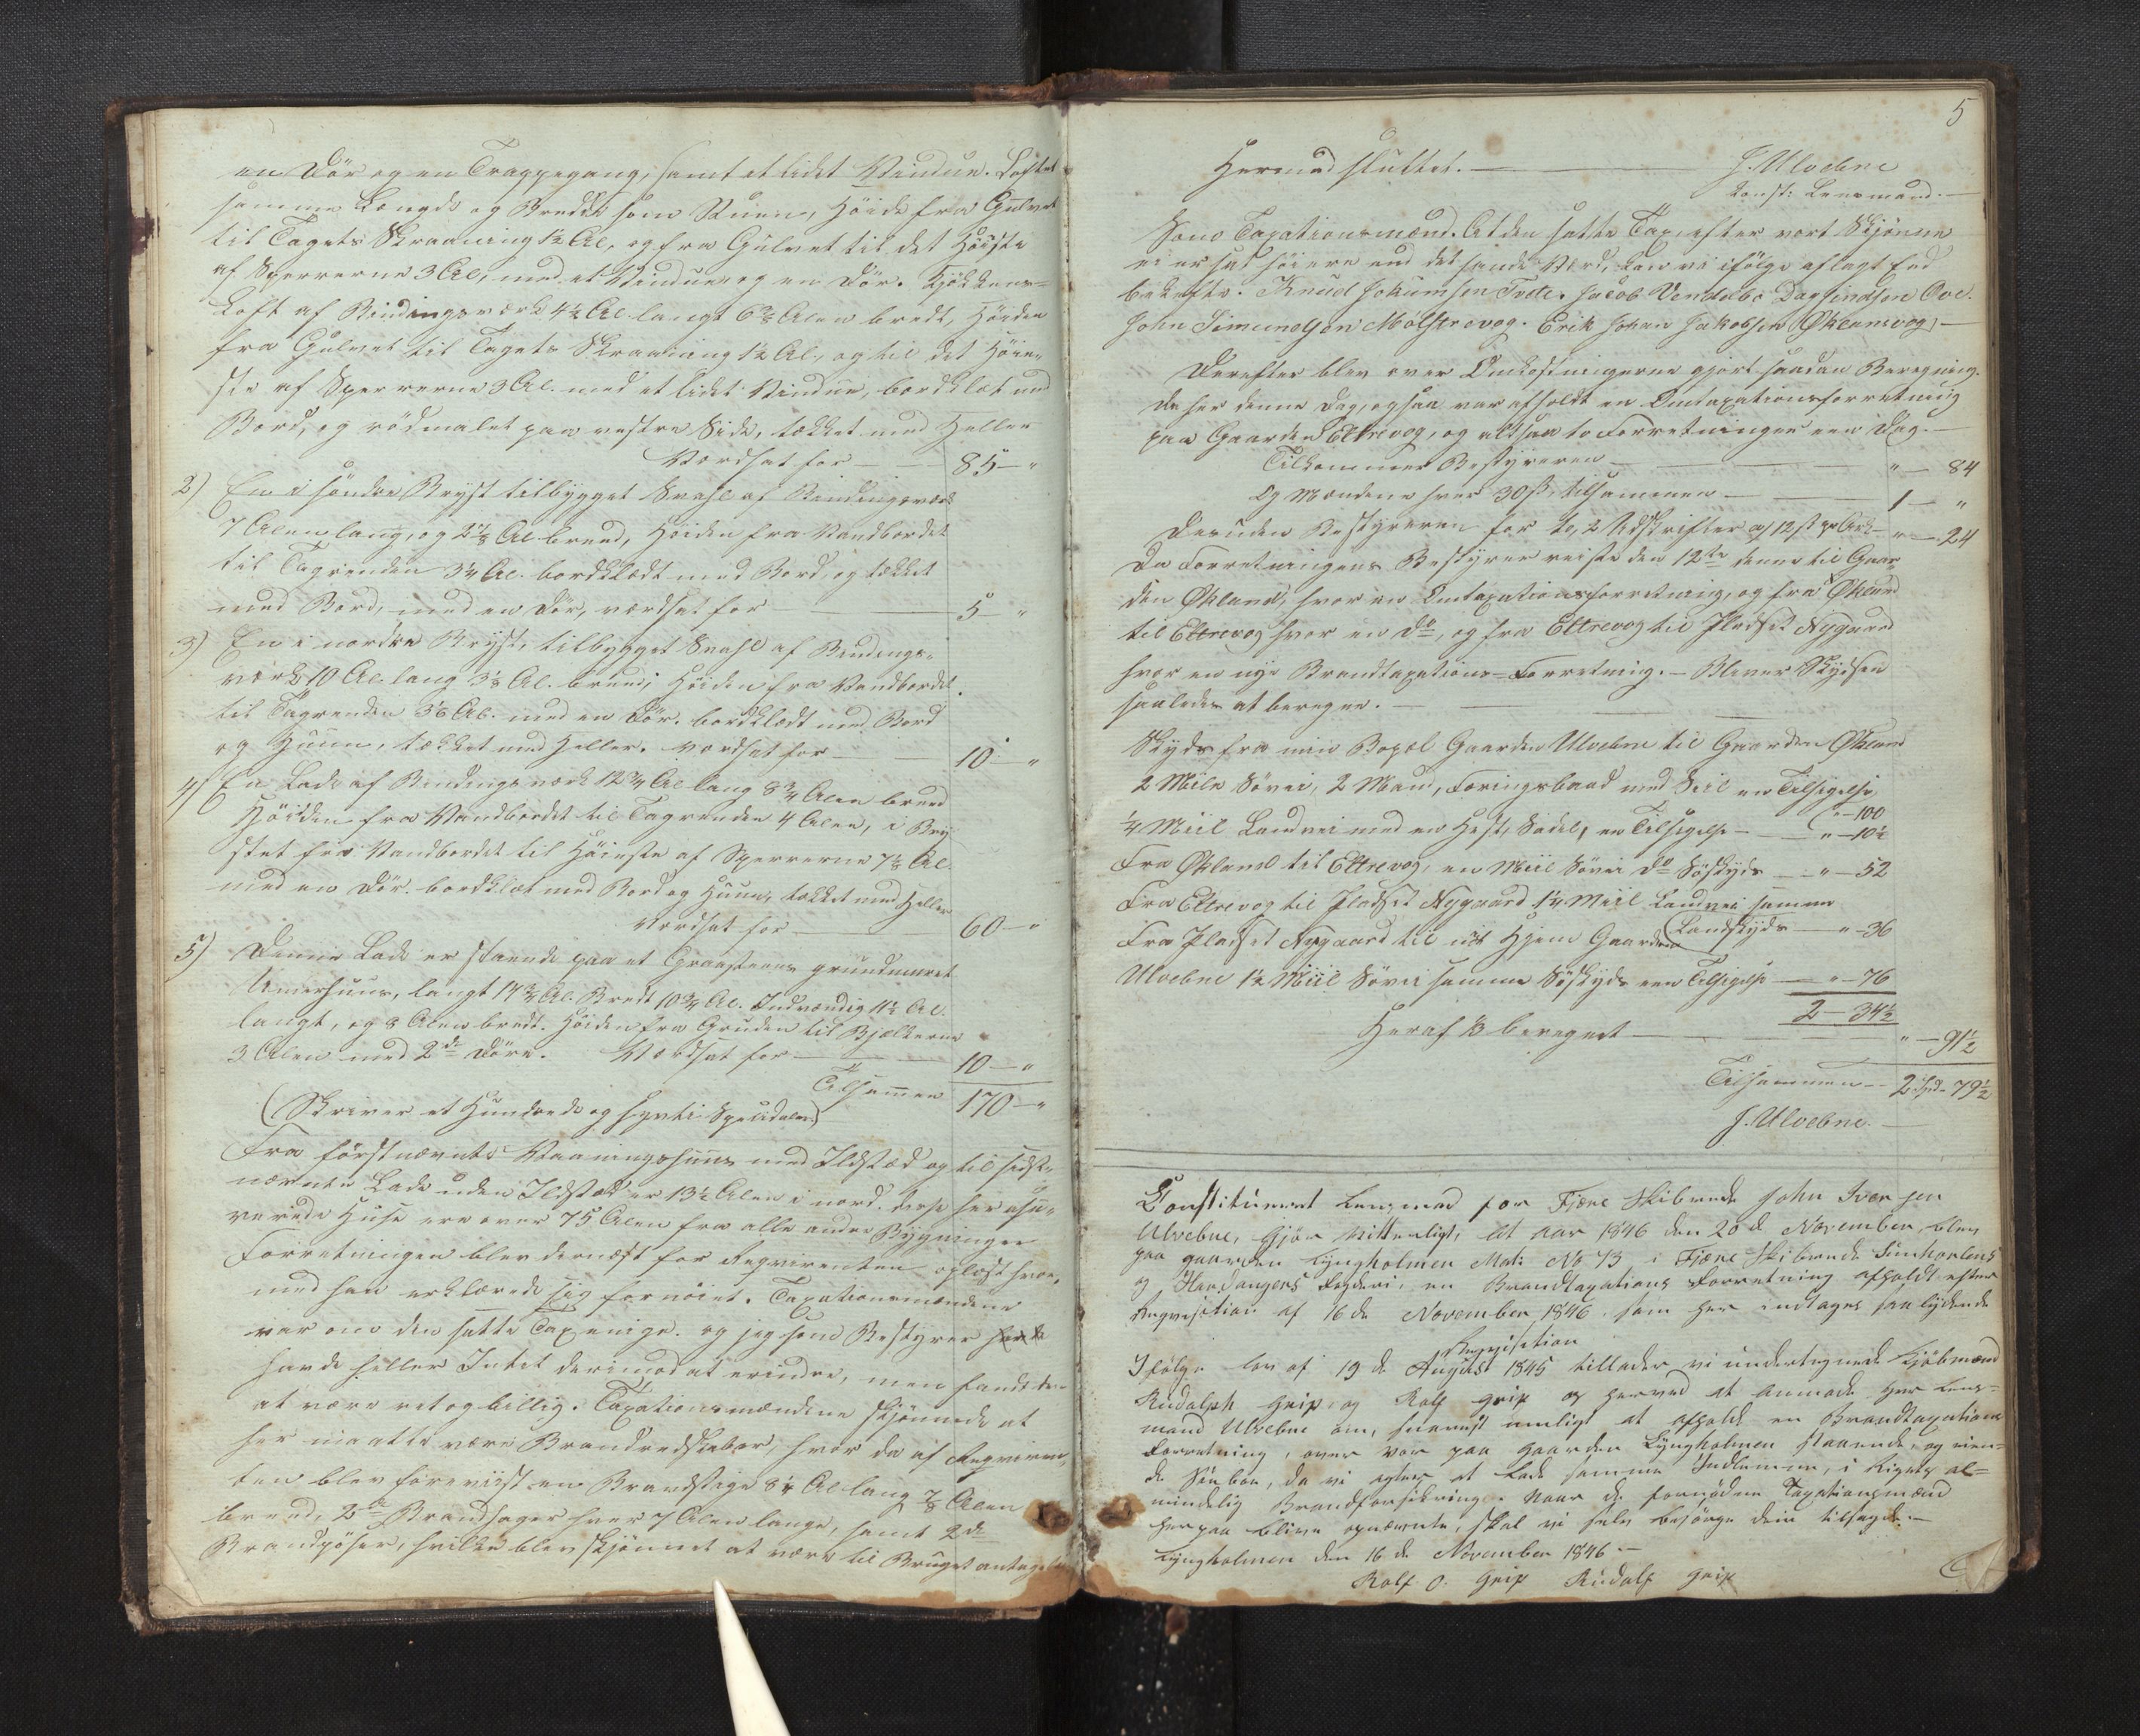 en Dör og en Trappegang, samt et lidet Vindue. Loftet
samme Længde og Bredde som Stuen, Höide fra Gulvet
til Tagets Skraaning 1½ Al, og fra Gulvet til det Höieste
af Sperrerne 3 Al, med et Vindue og en Dör. Kjökkens-
Loft af Bindingsværk 4½ Al. langt 6⅜ Alen bredt, Höiden
fra Gulvet til Tagets Skraaning 1½ Al, og til det Höie-
ste af Sperrerne 3 Al. med et lidet Vindue, bordklæt med
Bord, og rödmalet paa vestre Side, tækket med Heller
Værdsat for — 85 - "
2) En i söndre Bryst tilbygget Svahl af Bindingsværk
7 Alen lang, og 2⅛ Al breed, Höiden fra Vandbordet
til Tagrenden 3¼ Al. bordklædt med Bord, og tækket
med Bord, med en Dör, værdsat for — 5 - "
3) En i nordre Bryst, tilbygget Svahl af Bindings-
værk 10 Al. lang 3⅛ Al. breed, Höiden fra Vandbordet
til Tagrenden 3⅛ Al. med en Dör. bordklædt med Bord
og Huun, tækket med Heller. værdsat for — 10 - "
4) En Lade af Bindingsværk 12¾ Al lang 8¾ Alen breed
Höiden fra Vandbordet til Tagrenden 4 Alen, i Bry-
stet fra Vandbordet til Höieste af Sperrerne 7½ Al.
med en Dör. bordklæt med Bord og Huun, tækket med Heller
Værdsat for — 60 - "
5) Denne Lade er staaende paa et Graasteens grundmuret
langt 14¾ Al. Bredt 10¾ Al. Indvendig 11½ Al.
langt, og 8 Alen bredt. Höiden fra Grunden til Bjælkerne
3 Alen med 2de Döre. Værdsat for — 10 - "
Tilsammen 170 - "
(Skriver et Hundrede og Sytti Speciedaler)
Fra förstnævnte Vaaningshuus med Ildsted og til sidst-
nævnte Lade uden Ildsted er 13½ Alen i nord. disse her
Huse ere over 75 Alen fra alle andre Bygninger
Forretningen blev dernæst for Reqvirenten oplæst hvor-
med han erklærede sig fornöiet. Taxationsmændene
var om den satte Tax enige. og jeg som Bestyrer
havde heller Intet derimod at erindre, men fandt den
at være ret og billig. Taxationsmændene skjönnede at
her maatte være Brandredskaber, hvor da af Reqviren-
ten blev foreviist en Brandstige 8¼ Al lang ⅞ Alen
breed, 2de Brandhager hver 7 Alen lange, samt 2de
Brandpöser, hvilke blev skjönnet at være til Bruget antagelig
5
Hermed sluttet. — J. Ulvebne
konst: Lensmand. —
Som Taxationsmænd. At den satte Tax efter vort Skjönne
ei er sat höiere end det sande Værd, kan vi ifölge aflagt Eed
bekræfte. Knud Jokumsen Tvete. Jacob Vendelbo Dagfindsen Ove.
John Simundsøn Mølstrevog. Erik Johan Jakobsen Økleensvog. —
Derefter blev over Omkostningerne gjort saadan Beregning.
Da her denne Dag, ogsaa var afholdt en Omtaxationsforretning
paa Gaarden Eltrevog, og altsaa to Forretninger een Dag. —
Tilkommer Bestyreren — " - 84
Og Mændene hver 30 ß, tilsammen — 1 - "
Desuden Bestyreren for to, 2 Udskrifter a 12 ß pr Ark — " - 24
Da Forretningens Bestyrer reiste den 12te denne til Gaar-
den Økland, hvor en Omtaxationsforretning, og fra Økland
til Eltrevog hvor en Do, og fra Eltrevog til Pladset Nygaard
hvor en nye Brandtaxations-Forretning. — Bliver Skydsen
saaledes at beregne. —
Skyds fra min Bopæl Gaarden Ulvebne til Gaarden Økland
2 Mile Söevei, 2 Mand, Færingsbaad med Seil en Tilsigelse
" - 100
¼ Miil Landvei med en Hest, Sadel, en Tilsigelse — " - 10½
Fra Økland til Eltrevog, en Miil Söevei Do Söskyds — " - 52
Fra Eltrevog til Pladset Nygaard 1¼ Miil Landvei samme
Landskyds — " - 36
Fra Pladset Nygaard til mit Hjem Gaarden
Ulvebne 1½ Miil Söevei samme Söskyds een Tilsigelse — " - 76
2 - 34½
Heraf ⅓ beregnet — " - 91½
Tilsammen — 2 Spd - 79½
J. Ulvebne. —
Constitueret Lensmand for Fjære Skibrede John Iversen
Ulvebne, Gjør Vitterligt, At Aar 1846 den 20de November, blev
paa gaarden Lyngholmen Mat: No 73 i Fjære Skibrede Sundhorlens
og Hardangers Fogderi, en Brandtaxations Forretning afholdt efter
Reqvisition af 16de November 1846. som her indtages saalydende
Reqvisition
Ifølge lov af 19de August 1845 tillader vi undertegnede Kjöbmænd
Rudolph Greip og Rolf Greip os herved at anmode Her Lens-
mand Ulvebne om, snarest muligt at afholde en Brandtaxations
Forretning, over vor paa Gaarden Lyngholmen staaende, og eien-
de Söebue, da vi agter at lade samme Indlemme, i Rigets al-
mindelig Brandforsikring. Naar de fornödne Taxationsmænd
herpaa blive opnævnte, skal vi selv besörge dem tilsagde. —
Lyngholmen den 16de November 1846 —
Rolf O. Greip Rudolf Greip